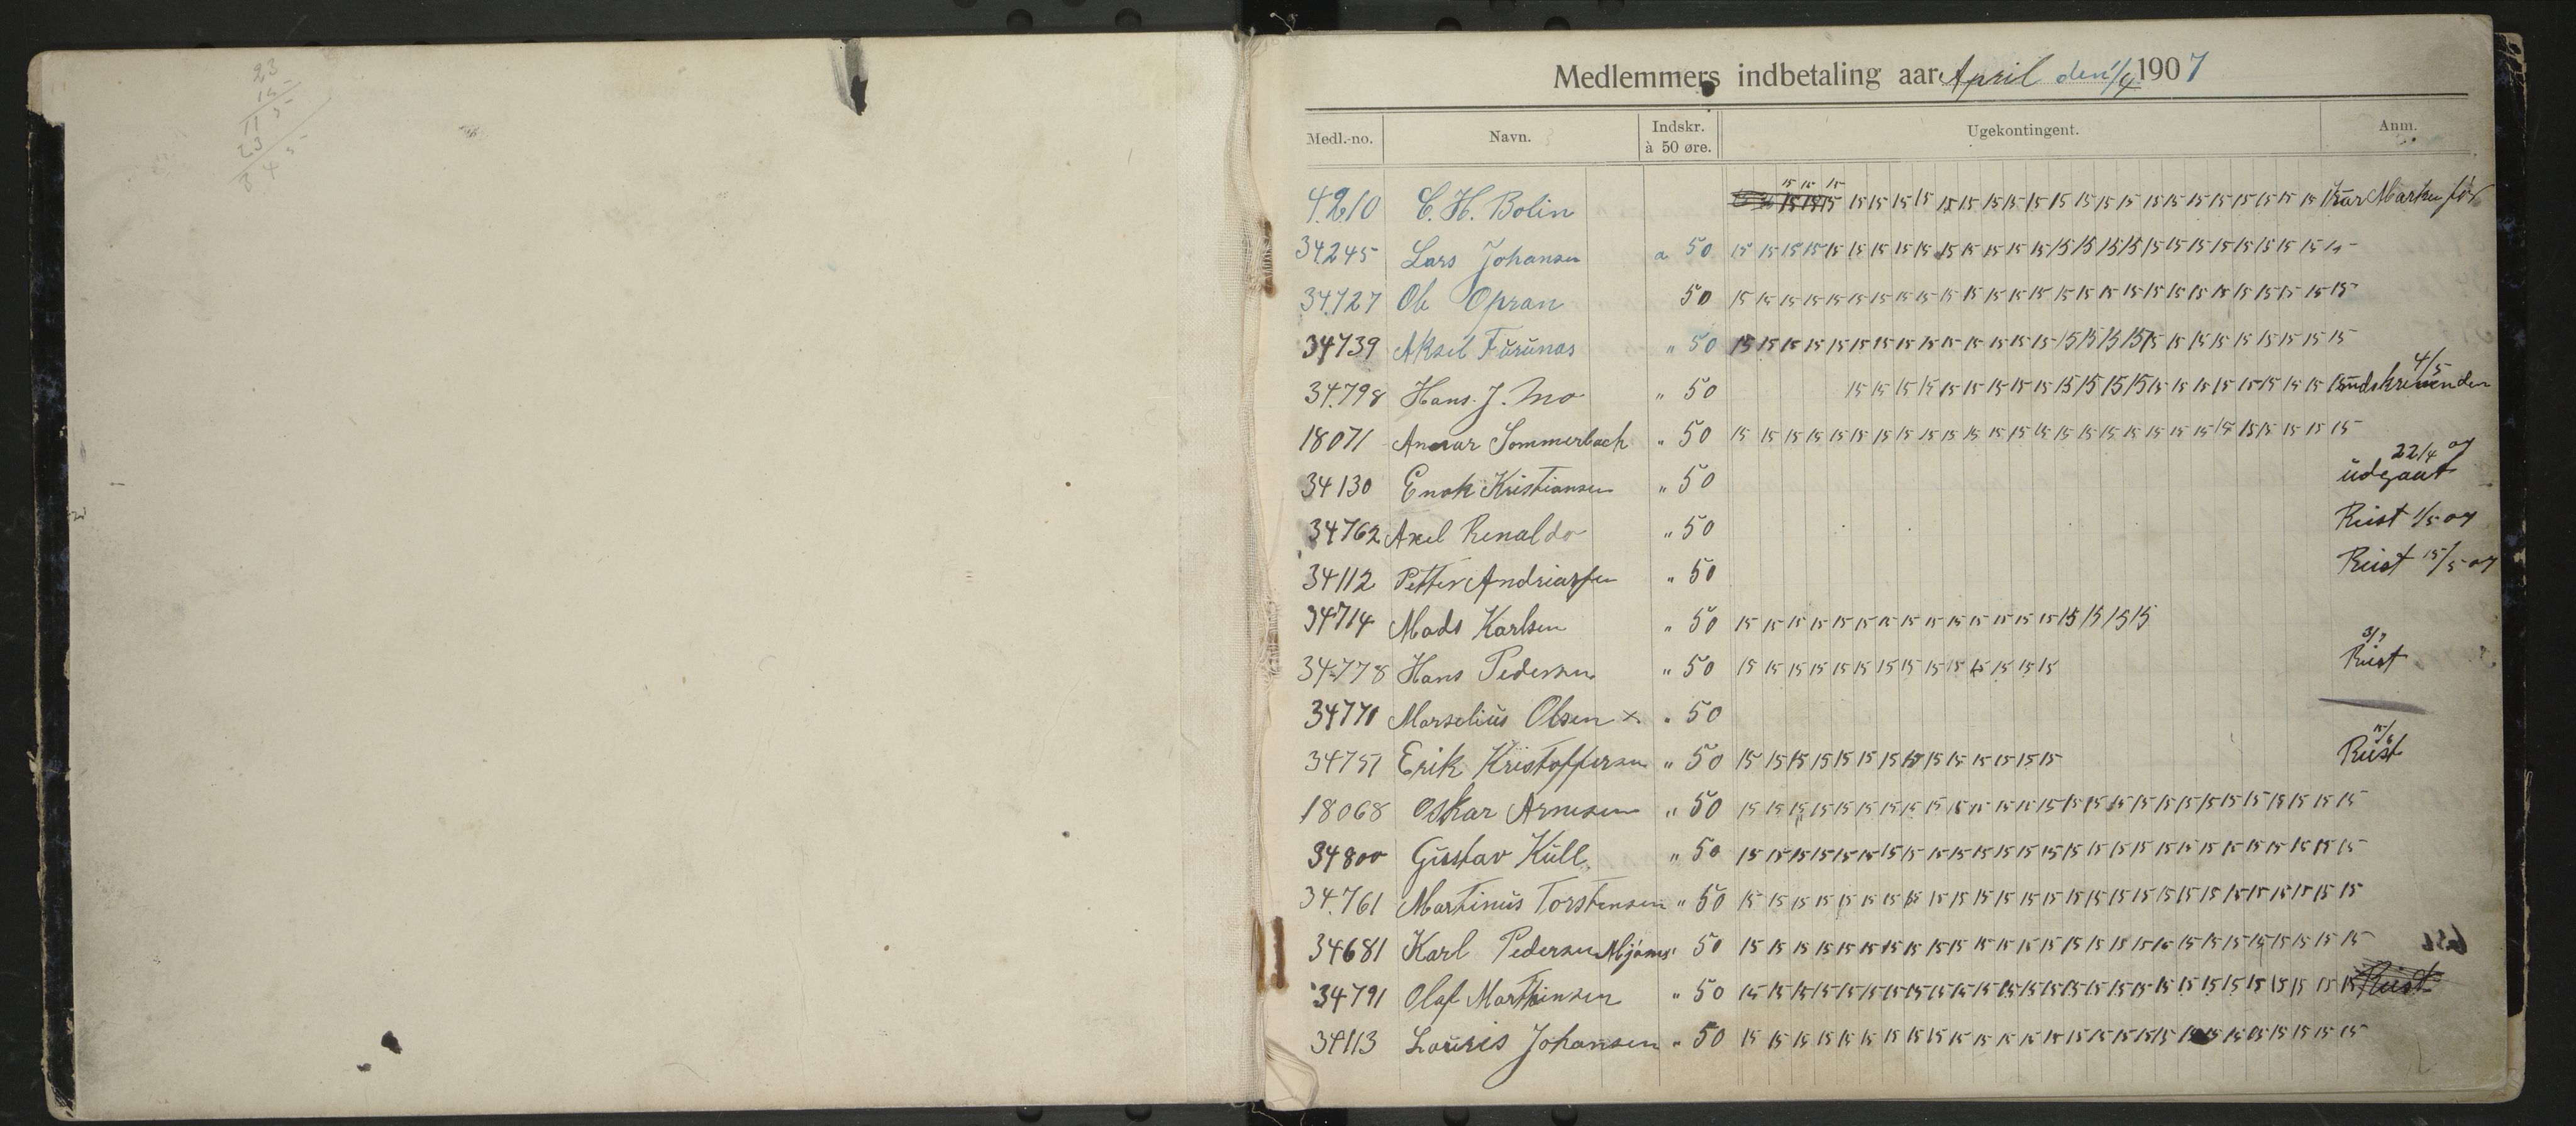 23
Medlemmers indbetaling aar April den 1/4 1907
Medl.-no. Navn. Indskr. à 50 øre. Ugekontingent. Anm.
15 15 15
4210 C. H. Bolin 15 15 15 15 15 15 15 15 15 15 15 15 15 15 15 15 15 15 15 15 15
34245 Lars Johansen a 50 15 15 15 15 15 15 15 15 15 15 15 15 15 15 15 15 15 15 15 15 15 15 15 15 15 15 15
34727 Ole Opran 50 15 15 15 15 15 15 15 15 15 15 15 15 15 15 15 15 15 15 15 15 15 15 15 15 15 15 15
34739 Aksel Furunas " 50 15 15 15 15 15 15 15 15 15 15 15 15 15 15 15 15 15 15 15 15 15 15 15 15 15 15 15
4/5
34.798 Hans. J. Mo " 50 15 15 15 15 15 15 15 15 15 15 15 15 15 15 15 15 15 15 15 15 15 15
18071 Sommerbach " 50 15 15 15 15 15 15 15 15 15 15 15 15 15 15 15 15 15 15 15 15 15 15 15 15 15 15 15
22/4 07
34130 Enok Kristiansen " 50 udgaat
34762 Axel Renaldo " 50 Reist 1/5 07
34112 Petter Andriassen " 50 Reist 15/5 07
34714 Mads Karlsen " 50 15 15 15 15 15 15 15 15 15 15 15 15 15 15 15 15 15 15
3/7
34778 Hans Pedersen " 50 15 15 15 15 15 15 15 15 15 15 15 15 15 15 Reist
34771 Marselius Olsen x " 50
15/6
34757 Erik Kristoffersen " 50 15 15 15 15 15 15 15 15 15 15 15 15 15 15 Reist
18068 Oskar Arnesen " 50 15 15 15 15 15 15 15 15 15 15 15 15 15 15 15 15 15 15 15 15 15 15 15 15 15 15 15
34800 Gustav Kull " 50 15 15 15 15 15 15 15 15 15 15 15 15 15 15 15 15 15 15 15 15 15 15 15 15 15 15 15
34.761 Martinus Torstensen " 50 15 15 15 15 15 15 15 15 15 15 15 15 15 15 15 15 15 15 15 15 15 15 15 15 15 15 15
34681 Karl Pedersen Mjønes " 50 15 15 15 15 15 15 15 15 15 15 15 15 15 15 15 15 15 15 15 15 15 15 15 15 15 15 15
34791 Olaf Marthinsen " 50 15 15 15 15 15 15 15 15 15 15 15 15 15 15 15 15 15 15 15 15 15 15 15 15 15 15 15 Reist
34113 Lauris Johansen " 50 15 15 15 15 15 15 15 15 15 15 15 15 15 15 15 15 15 15 15 15 15 15 15 15 15 15 15